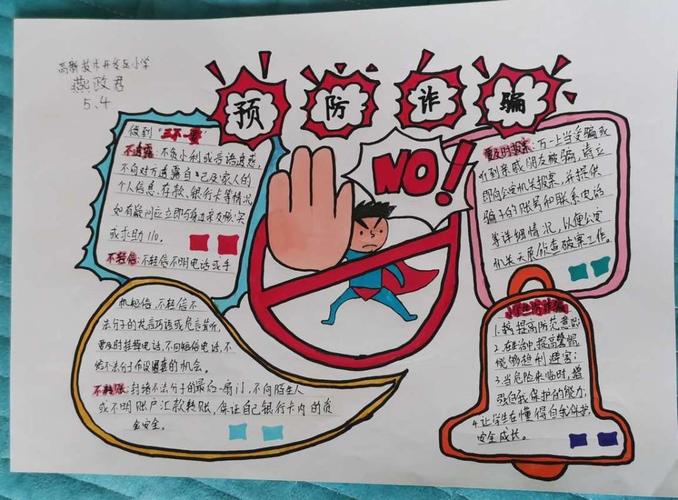 高新技术开发区小学
燕政君
5.4
预防诈骗
NO!
做到"三不一要"
不透露:不贪小利或告语迷惑,
不向对方透露自己及家人的
个人信息、存款、银行卡等情况
如有疑问应立即与身边亲友核实
或求助110。
不轻信:不轻信不明电话或手
机短信,不轻信不
法分子的花言巧语或危言耸听,
要及时挂断电话,不回短信电话,不
给不法分子布设圈套的机会。
不转账:封堵不法分子的最后一扇门,不向陌生人
或不明账户汇款转账,保证自己银行卡内的资
金安全。
要及时报案:万一上当受骗或
听到亲戚朋友被骗,请立
即向公安机关报案,并提供
骗子的账号和联系电话
等详细情况,以便公安
机关开展侦查破案工作。
小学生防诈骗
1.提高防范意识;
2.在生活中,提高警惕
能够趋利避害;
3.当危险来临时,增
强自我保护的能力,
4.让学生在懂得自我保护,
安全成长。